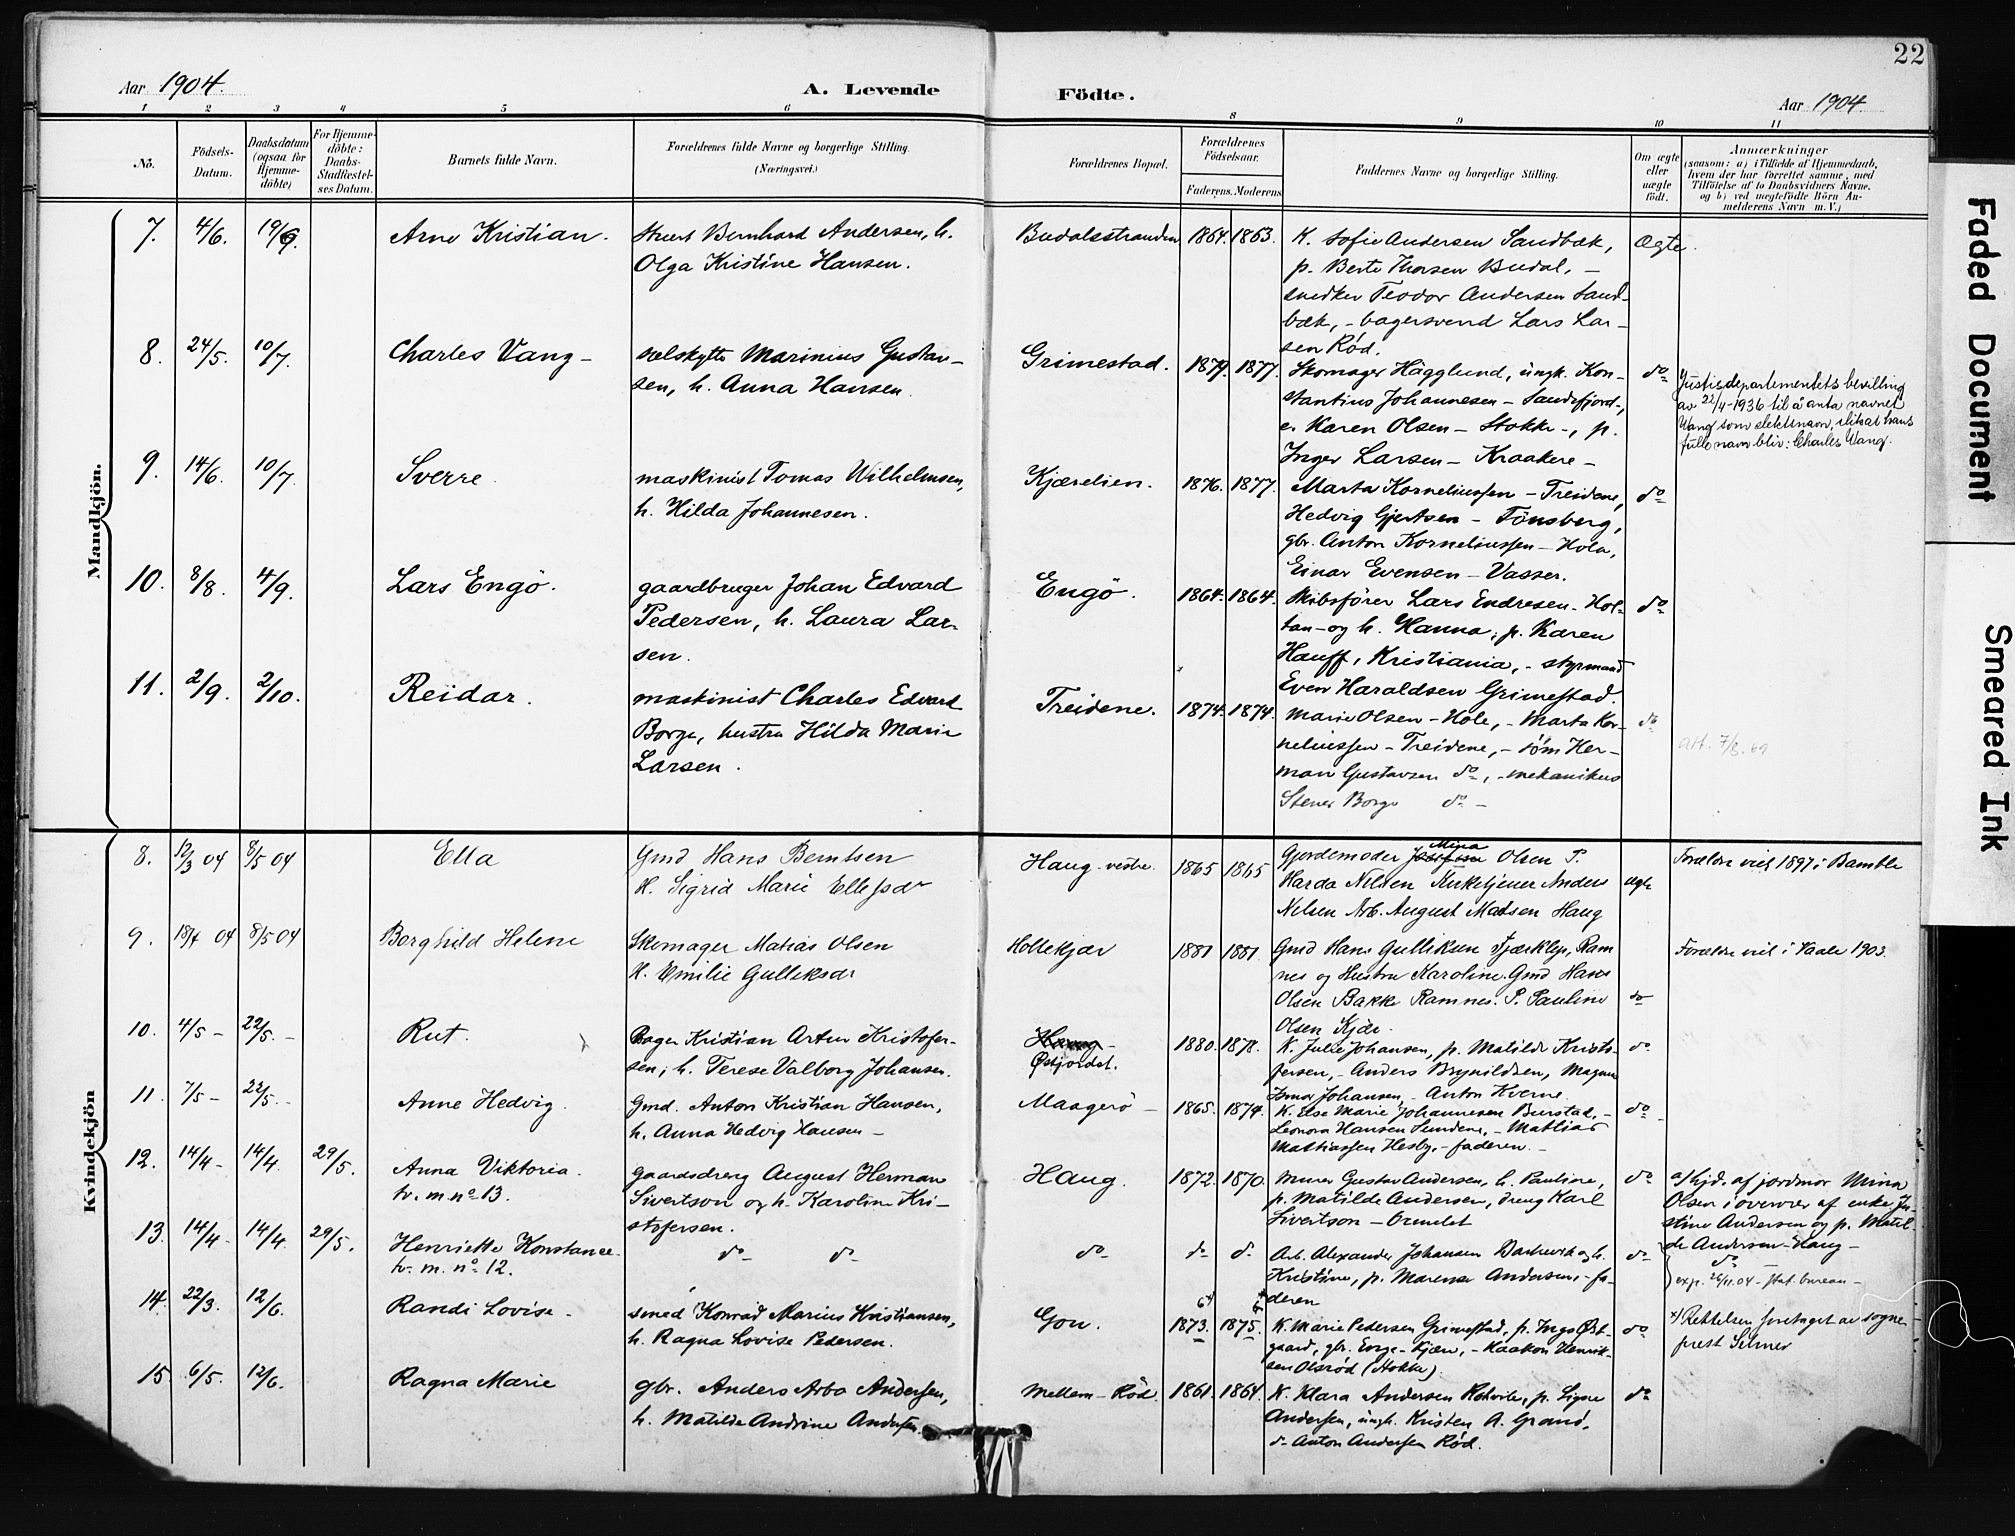 22
Aar 1904.
A. Levende
Födte.
Aar 1904.
1 2 3 4 5 6 8 9 10 11
No.
Födsels-Datum.
Daabsdatum (ogsaa for Hjemme-döbte)
For Hjemme-döbte: Daabs-Stadfæstel-ses Datum.
Barnets fulde Navn.
Forældrenes fulde Navne og borgerlige Stilling.
(Næringsvei.)
Forældrenes Bopæl.
Forældrenes Födselsaar.
Faderens. Moderens.
Faddernes Navne og borgerlige Stilling.
Om ægte eller uægte födt.
Anmærkninger
(saasom: a) i Tilfælde af Hjemmedaab,
hvem der har forrettet samme, med
Tilföielse af to Daabsvidners Navne,
og b) ved uægtefödte Börn An-
melderens Navn m. V.)
Mandkjön.
7. 4/6. 19/6. Arne Kristian.
Bernhard Andersen, h.
Olga Kristine Hansen.
Budalsstranden 1864. 1863.
K. Sofie Andersen Sandbæk,
p. Berte Thorsen Budal, –
snedker Teodor Andersen Sand-
bæk, – bagersvend Lars Lar-
sen Rød.
Ægte.
8. 24/5. 10/7. Charles Vang –
sælskytte Marinius Gustav-
sen, h. Anna Hansen.
Grimestad. 1879. 1877.
Skomager Hägglund, ungk. Kon-
stantius Johannesen – Sandefjord –,
e. Karen Olsen – Stokke –, p.
Inger Larsen – Kraakere –
do
Justisdepartementets bevilling
av 22/4-1936 til å anta navnet
Vang som slektsnavn, slik at hans
fulle navn blir: Charles Vang.
9. 14/6. 10/7. Sverre.
maskinist Tomas Wilhelmsen,
h. Hilda Johannesen.
Kjærelien. 1876. 1877.
Marta Korneliussen – Treidene,
Hedvig Gjertsen – Tönsberg,
gbr. Anton Korneliussen – Hola,
Einar Evensen – Vasser.
do
10. 8/8. 4/9. Lars Engö.
gaardbruger Johan Edvard
Pedersen, h. Laura Lar-
sen.
Engö. 1864. 1864.
Skibsfører Lars Endresen – Hol-
tan – og h. Hanna, p. Karen
Hauff, Kristiania, – styrmand
Even Haraldsen Grimestad.
do
11. 2/9. 2/10. Reidar.
maskinist Charles Edvard
Borge, hustru Hilda Marie
Larsen.
Treidene. 1874. 1874.
Marie Olsen – Hole, – Marta Kor-
neliussen – Treidene, – söm Her-
man Gustavsen do, – mekanikus
Stener Borge do –
do
att. 7/8.69
Kvindekjön
8. 12/3 04 8/5 04 Ella
Gmd Hans Berntsen
H. Sigrid Marie Ellefsdr
Haug vestre. 1865 1865
Gjordemoder Mina Olsen P.
Harda Nilsen Kirketjener Anders
Nelsen Arb. August Madsen Haug
ægte
Forældre viet 1897 i Bamble
9. 18/4 04 8/5 04 Borghild Helene
Skomager Matias Olsen
H. Emilie Gulliksdr
Hollekjær 1881 1881.
Gmd Hans Gulliksen Fjærklep, Ram-
nes og Hustru Karoline. Gmd Hans
Olsen Bakke Ramnes. P. Pauline
Olsen Kjær.
do
Forældre viet i Vaale 1903.
10. 4/5 – 22/5. – Rut.
Bager Kristian Artur Kristofer-
sen, h. Terese Valborg Johansen.
Haug –
Østjordet.
1880. 1878.
K. Julie Johansen, p. Matilde Kristo-
fersen, – Anders Brynildsen, Magnus
Johansen, Anton Kverne
do
11. 7/5 – 22/5. – Anne Hedvig.
Gmd. Anton Kristian Hansen,
h. Anna Hedvig Hansen –
Maagerø – 1865. 1874.
K. Else Marie Johannesen Burstad, –
Leonora Hansen Sundene, – Mathias
Mathiassen Hesby, – faderen. –
do
12. 14/4 – 14/4. 29/5. Anna Viktoria.
tv. m. no 13.
gaardsdreng August Herman
Sivertson og h. Karoline Kri-
stofersen.
Haug. 1872. 1870.
Murer Gustav Andersen, h. Pauline,
p. Matilde Andersen, dreng Karl
Sivertson – Ormelet
do
a) hjd. af jordmor Mina
Olsen i overvær af enke Ju-
stine Andersen og p. Matil-
de Andersen – Haug –
13. 14/4 – 14/4. 29/5. Henriette Konstance
tv. m. no 12.
do do
do do do
Arb. Alexander Johansen Barkevik og h.
Kristine, p. Marense Andersen, – fa-
deren
do
do
exp. 26/11.04 – stat. bureau –
14. 22/3. 12/6. Randi Lovise.
smed Konrad Marius Kristiansen,
h. Ragna Lovise Pedersen.
Gon. 1873. 1875.
K. Marie Pedersen Grimestad, p. Inga Øst-
gaard, gbr. Enge – Kjær, – Haakon Henrik-
sen Olsrød (Stokke)
do
x) Rettelsen foretaget av sogne-
prest Selmer
15. 6/5. 12/6. Ragna Marie
gbr. Anders Arbo Andersen,
h. Matilde Andrine Andersen.
Mellem – Rød. 1861. 1864.
K. Klara Andersen, p. Signe
Andersen, ungk. Kristen A. Grand,
do Anton Andersen Rød.
do
Faded Document
Smeared Ink